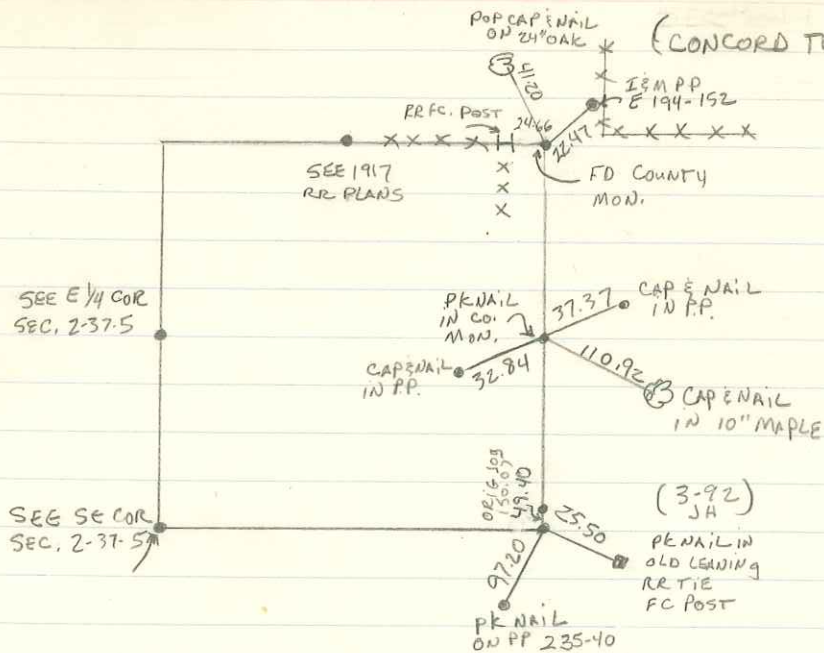 POP CAP & NAIL
ON 24" OAK
(CONCORD
41.20
I&M PP
E 194-152
RR FC. POST
24.66
22.47
SEE 1917
RR PLANS
FD COUNTY
MON.
SEE E 1/4 COR
SEC. 2-37-5
PK NAIL
IN CO.
MON.
37.37
CAP & NAIL
IN P.P.
CAP & NAIL
IN P.P.
32.84
110.92
CAP & NAIL
IN 10" MAPLE
ORIG JOB
49.40
25.50
(3-92)
JH
SEE SE COR
SEC. 2-37-5
PK NAIL IN
OLD LEANING
RR TIE
FC POST
97.20
PK NAIL
ON PP 235-40